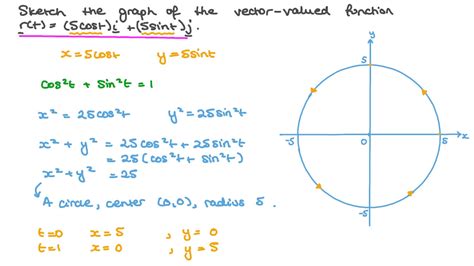 Sketch the graph of the vector-valued function
r(t) = (5cost)i + (5sint)j.
x = 5cost y = 5sint
cos²t + sin²t = 1
x² = 25cos²t y² = 25sin²t
x² + y² = 25cos²t + 25sin²t
= 25(cos²t + sin²t)
x² + y² = 25
A circle, center (0,0), radius 5.
t=0 x = 5 , y = 0
t=1 x = 0 , y = 5
y
5
-5 0 5 x
-5